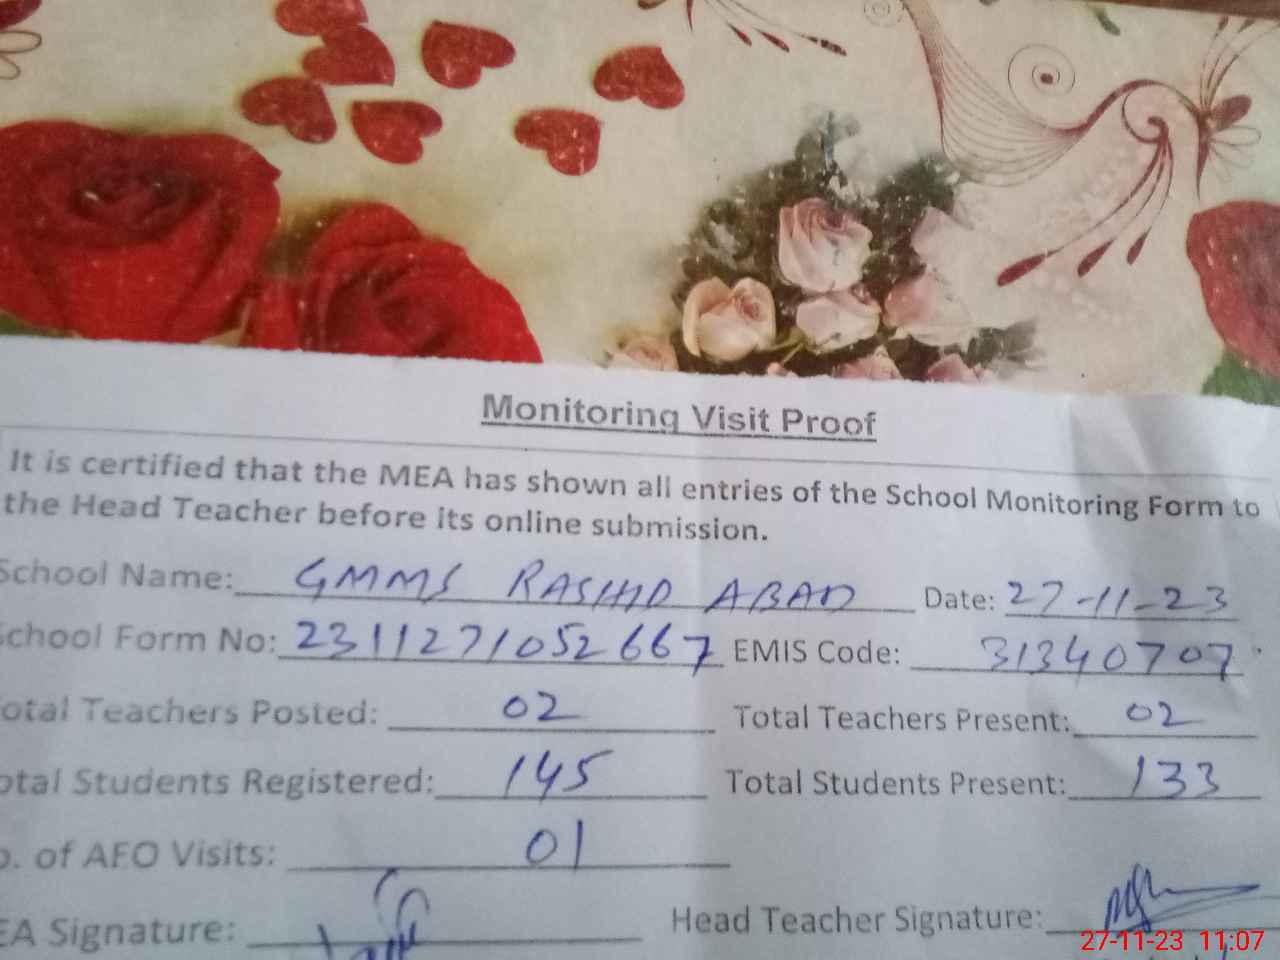 Monitoring Visit Proof
It is certified that the MEA has shown all entries of the School Monitoring Form to
the Head Teacher before its online submission.
School Name: GMMS RASHID ABAD Date: 27-11-23
School Form No: 2311271052667 EMIS Code: 31340707
otal Teachers Posted: 02 Total Teachers Present: 02
otal Students Registered: 145 Total Students Present: 133
o. of AEO Visits: 01
EA Signature: Head Teacher Signature:
27-11-23 11:07